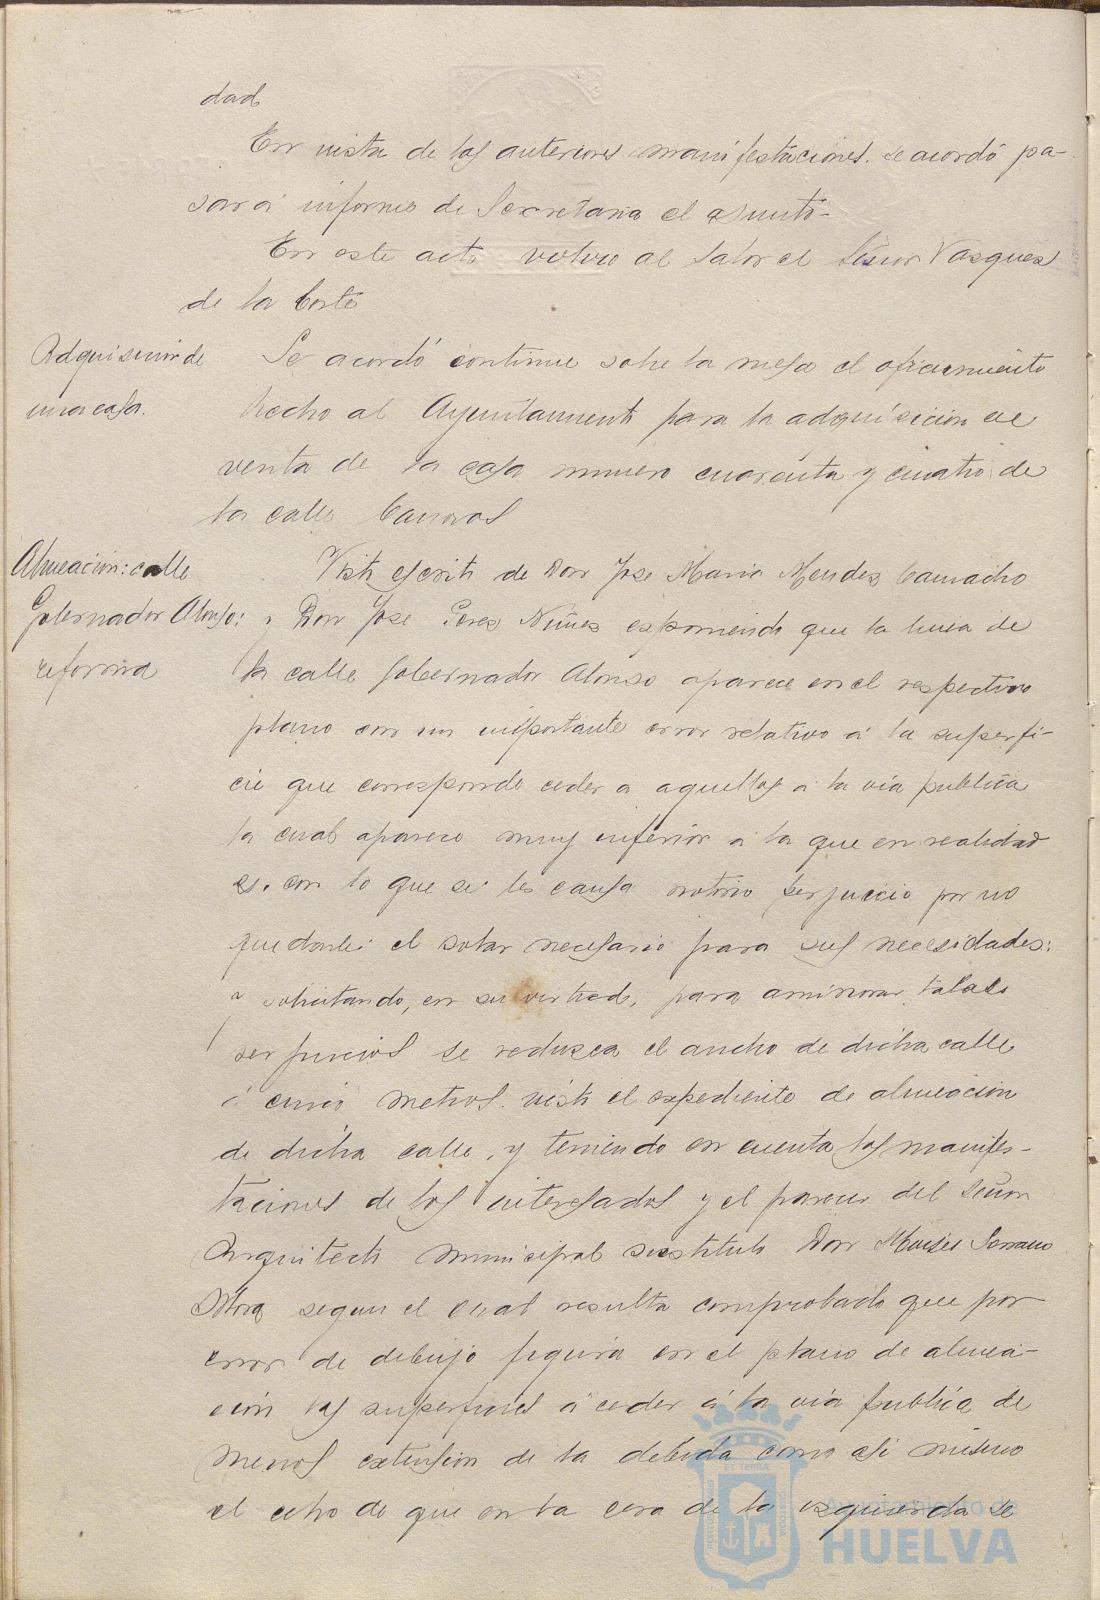 dad
En vista de las anteriores manifestaciones. se acordó pa-
sar á informe de Secretaria el asunto-
En este acto volvio al Salon el Señor Vasquez
de la Corte
Adquisicion de
una casa.
Se acordó continue sobre la mesa el ofrecimiento
hecho al Ayuntamiento para la adquisicion en
venta de la casa numero cuarenta y cuatro de
la calle
Alineacion: calle
Gobernador Alonso:
reforma
Visto escrito de Don Jose Maria Mendez Camacho
y Don Jose Perez Nuñez exponiendo que la linea de
la calle Gobernador Alonso aparece en el respectivo
plano con un importante error relativo á la superfi-
cie que corresponde ceder a aquellos á la via publica
la cual aparece muy inferior a la que en realidad
es. con lo que se les causa notorio perjuicio por no
quedarle el solar necesario para sus necesidades:
y solicitando, en su virtud, para aminorar tales
perjuicios se reduzca el ancho de dicha calle
á cinco metros. visto el expediente de alineacion
de dicha calle, y teniendo en cuenta las manifes-
taciones de los interesados y el parecer del Señor
Arquitecto municipal sustituto Don Moises Serrano
Mora segun el cual resulta comprobado que por
error de dibujo figura en el plano de alinea-
ción las superficies á ceder á la via publica de
menos extension de la debida como asi mismo
el de que en la cera de la izquierda se
Ayuntamiento de
HUELVA